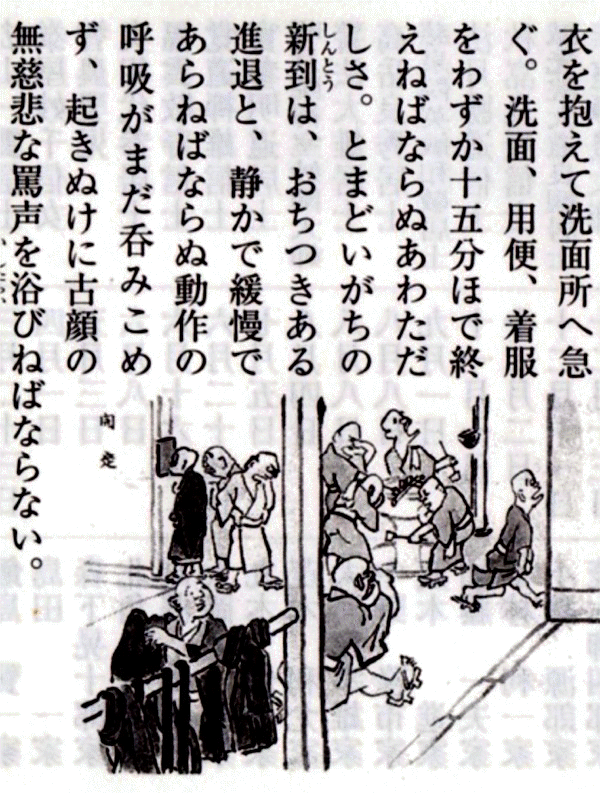 衣を抱えて洗面所へ急
ぐ。洗面、用便、着服
をわずか十五分ほどで終
えねばならぬあわただ
しさ。とまどいがちの
新到は、おちつきある
しんとう
進退と、静かで緩慢で
あらねばならぬ動作の
呼吸がまだ呑みこめ
ず、起きぬけに古顔の
無慈悲な罵声を浴びねばならない。
開定